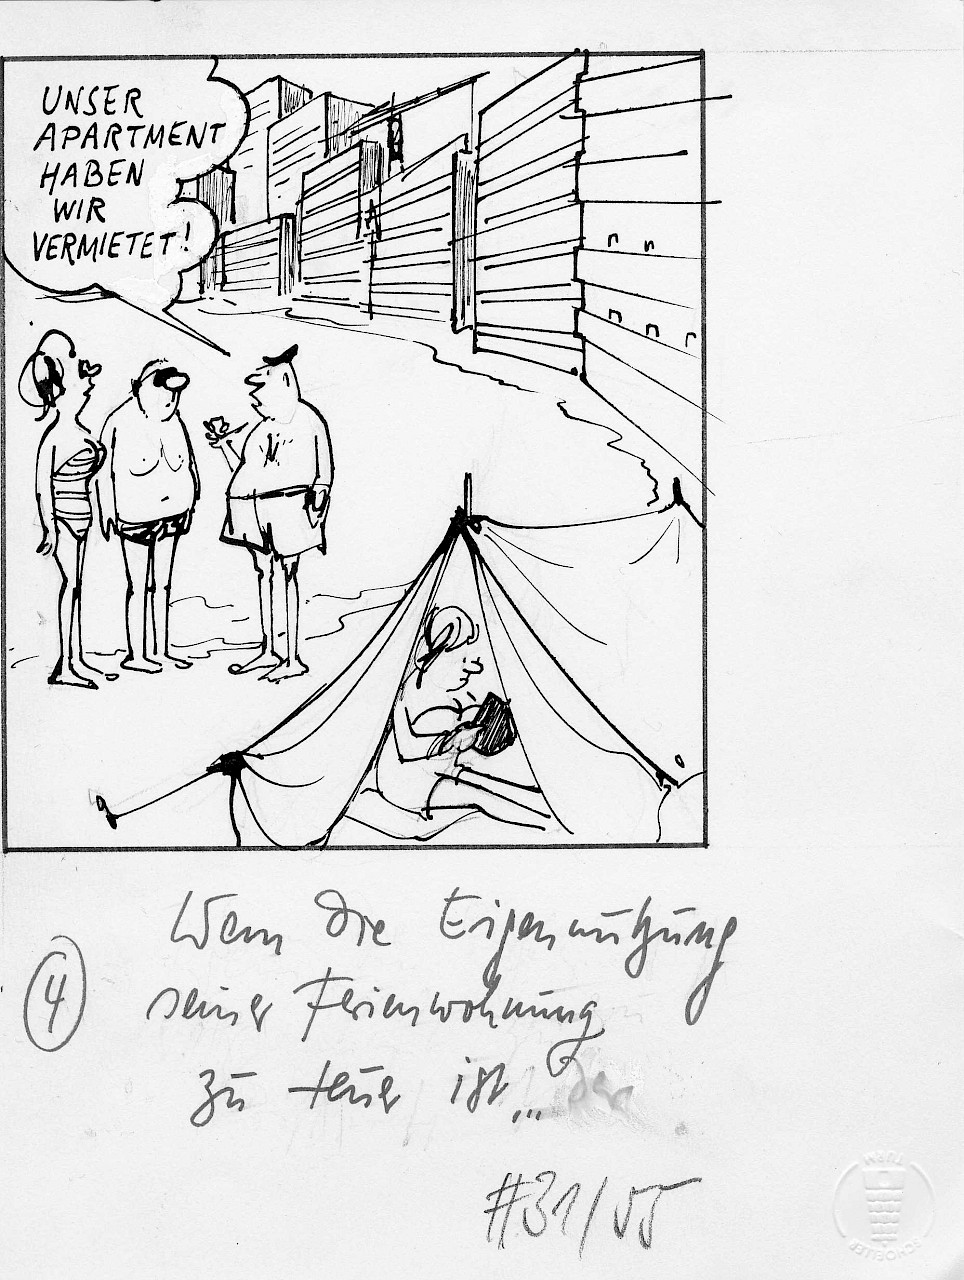 UNSER
APARTMENT
HABEN
WIR
VERMIETET!
Wem die Eigennutzung
④ seiner Ferienwohnung
zu teuer ist...
#31/55
TURM
SCHOELLER